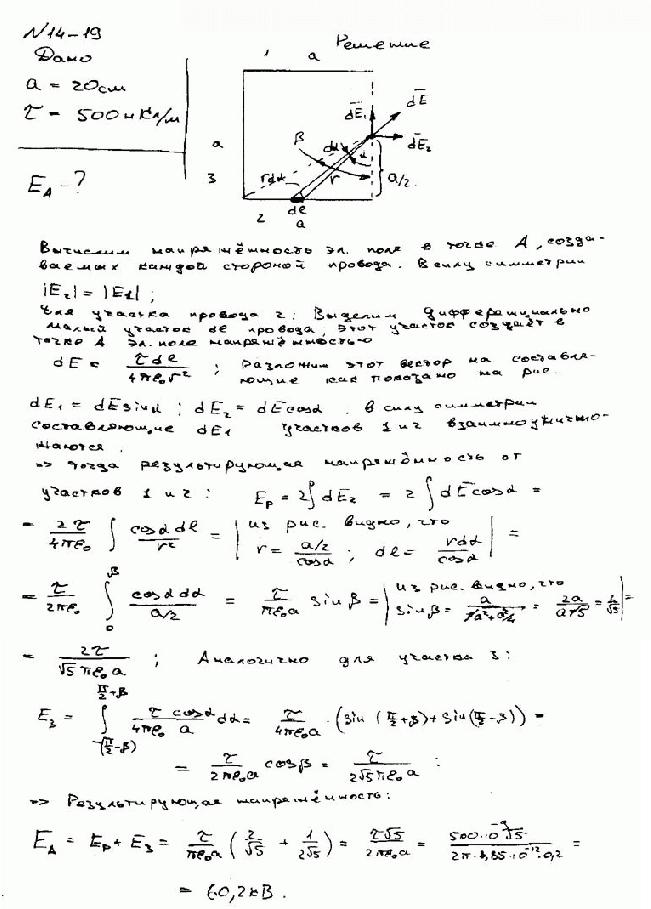 N14-19
Дано
a = 20см
τ = 500нКл/м
E_A - ?
Решение
1 a
dE̅₁ dE̅
dE̅₂
β dα α
a r a/2
3 rdα
2 dl
a
Вычислим напряжённость эл. поля в точке A, созда-
ваемых каждой стороной провода. В силу симметрии
|E₂| = |E1| ;
Для участка провода 2: Выделим дифференциально
малый участок dl провода, этот участок создаёт в
точке A эл. поле напряжённостью
dE = τdl / 4πε₀r² ; разложим этот вектор на составля-
ющие как показано на рис.
dE₁ = dEsinα ; dE₂ = dEcosα . В силу симметрии
составляющие dE₁ участков 1 и 2 взаимно уничто-
жаются.
=> тогда результирующая напряжённость от
участков 1 и 2: E_p = 2∫dE₂ = 2∫dEcosα =
= 2τ/4πε₀ ∫ cosα dl / r² = | из рис. видно, что r = (a/2)/cosα ; dl = rdα/cosα | =
= τ/2πε₀ ∫₀^β cosα dα / (a/2) = τ/πε₀a sinβ = | из рис. видно, что sinβ = a/√(a²+a²/4) = 2a/a√5 = 2/√5 | =
= 2τ/√5πε₀a ; Аналогично для участка 3:
E₃ = ∫_{-(π/2-β)}^{π/2+β} τ cosα / 4πε₀ a dα = τ/4πε₀a · (sin(π/2+β)+sin(π/2-β)) =
= τ/2πε₀a cosβ = τ/2√5πε₀a :
=> Результирующая напряжённость:
E_A = E_p + E₃ = τ/πε₀a (2/√5 + 1/2√5) = τ√5/2πε₀a = 500·10⁻⁹√5 / 2π·8,85·10⁻¹²·0,2 =
= 60,2 кВ.